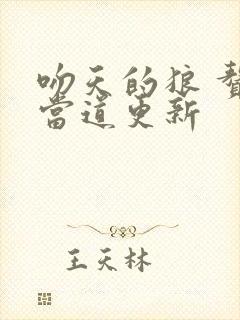 吻天的狼 贅
當道更新
王天林